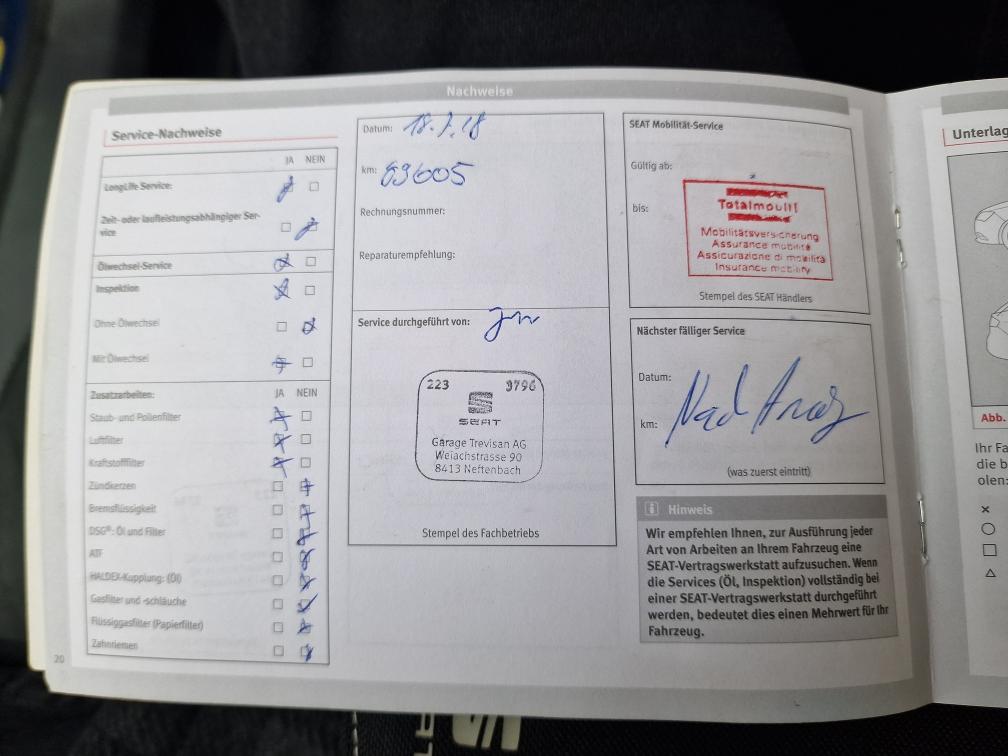 Nachweise
Service-Nachweise
JA NEIN
LongLife Service:
Zeit- oder laufleistungsabhängiger Ser-
vice
Ölwechsel-Service
Inspektion
Ohne Ölwechsel
Mit Ölwechsel
Zusatzarbeiten: JA NEIN
Staub- und Pollenfilter
Luftfilter
Kraftstofffilter
Zündkerzen
Bremsflüssigkeit
DSG®: Öl und Filter
ATF
HALDEX-Kupplung: (Öl)
Gasfilter und -schläuche
Flüssiggasfilter (Papierfilter)
Zahnriemen
20
Datum: 18.7.18
km: 89605
Rechnungsnummer:
Reparaturempfehlung:
Service durchgeführt von:
223 3796
SEAT
Garage Trevisan AG
Weiachstrasse 90
8413 Neftenbach
Stempel des Fachbetriebs
SEAT Mobilität-Service
Gültig ab:
bis:
Totalmobil!
Mobilitätsversicherung
Assurance mobilité
Assicurazione di mobilità
Insurance mobility
Stempel des SEAT Händlers
Nächster fälliger Service
Datum:
km:
Nach Anzeig
(was zuerst eintritt)
Hinweis
Wir empfehlen Ihnen, zur Ausführung jeder
Art von Arbeiten an Ihrem Fahrzeug eine
SEAT-Vertragswerkstatt aufzusuchen. Wenn
die Services (Öl, Inspektion) vollständig bei
einer SEAT-Vertragswerkstatt durchgeführt
werden, bedeutet dies einen Mehrwert für Ihr
Fahrzeug.
Unterlag
Abb.
Ihr Fa
die b
olen: